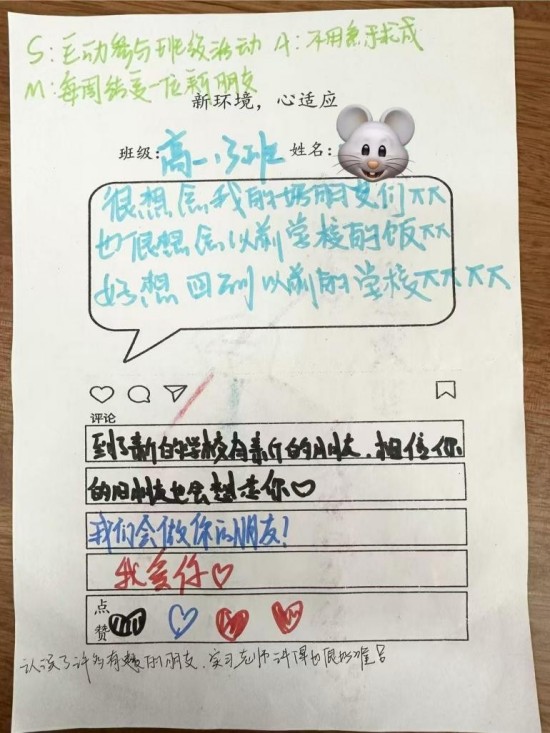 S：主动参与班级活动 A：不用急于求成
M：每周结交一位新朋友
新环境，心适应
班级：高一.3班 姓名：
很想念我的好朋友们ㅠㅠ
也很想念以前学校的饭ㅠㅠ
好想回到以前的学校ㅠㅠㅠㅠ
评论
到了新的学校有新的朋友，相信你
的旧朋友也会想念你♡
我们会做你的朋友！
我爱你♡
点赞
认识了许多有趣的朋友，实习老师讲得也很